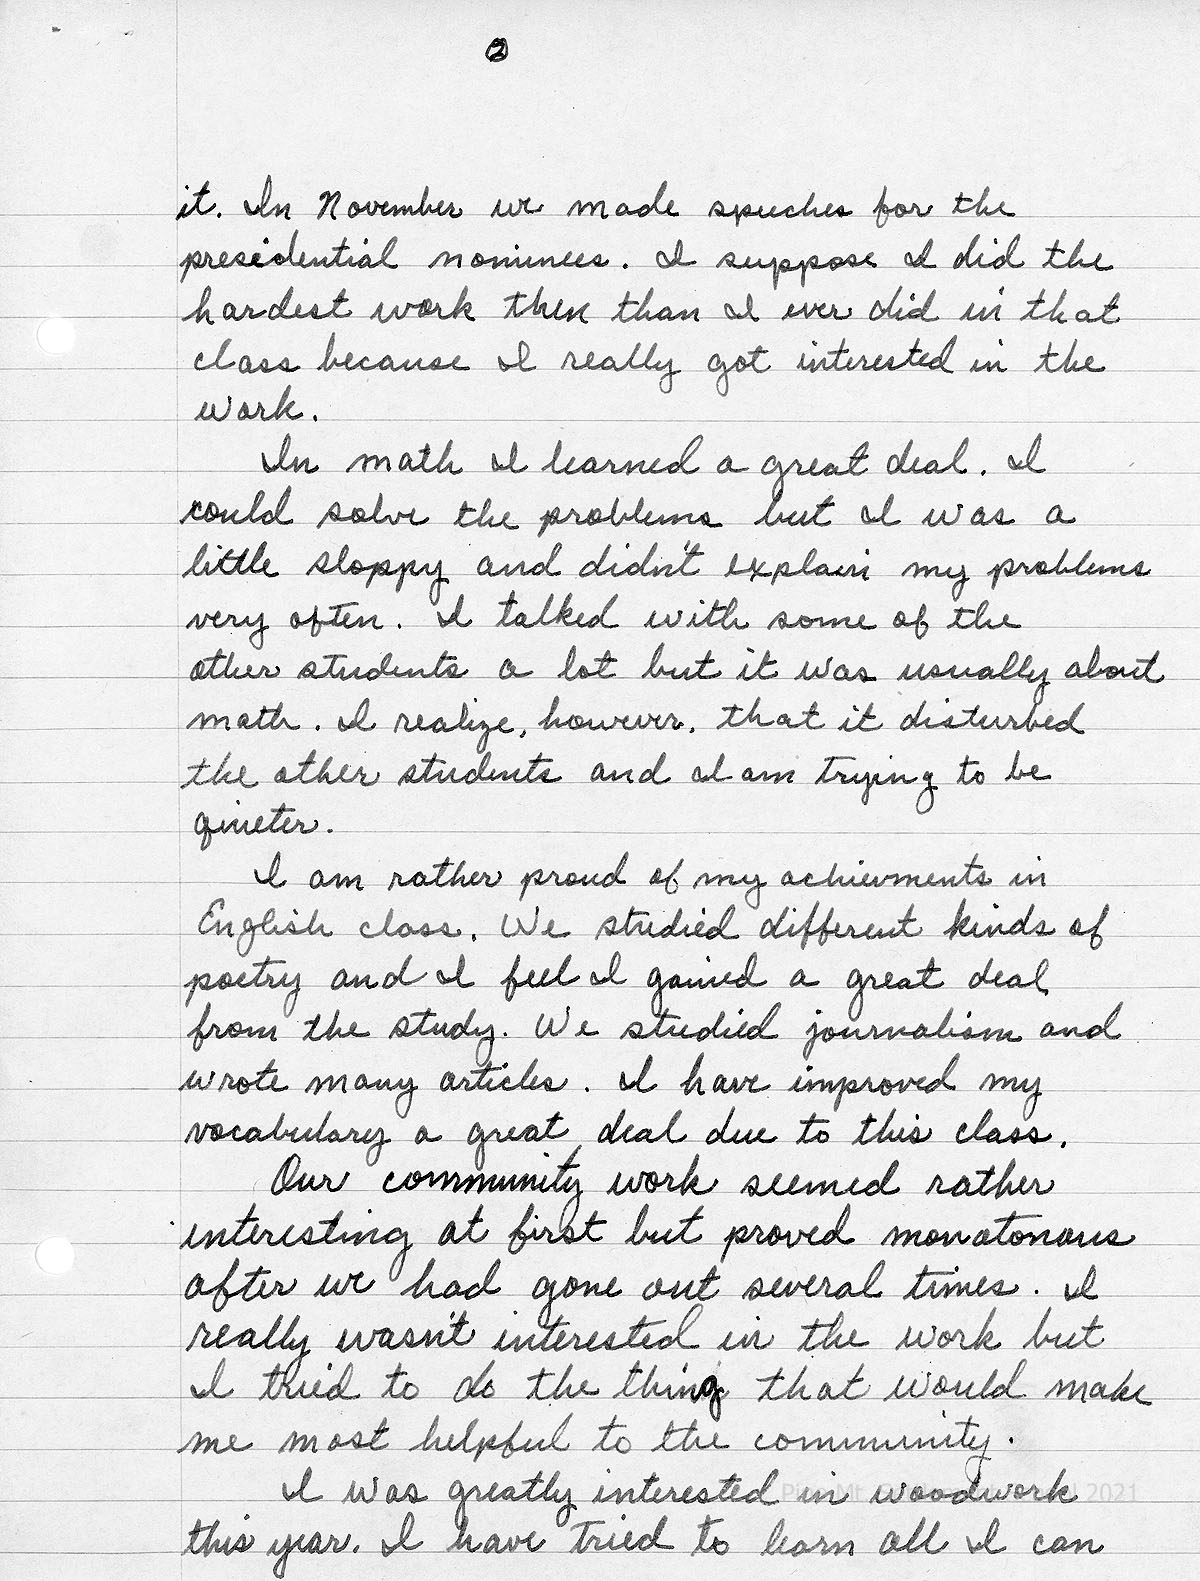 2
it. In November we made speeches for the
presidential nominees. I suppose I did the
hardest work then than I ever did in that
class because I really got interested in the
work.
In math I learned a great deal. I
could solve the problems but I was a
little sloppy and didn't explain my problems
very often. I talked with some of the
other students a lot but it was usually about
math. I realize, however, that it disturbed
the other students and I am trying to be
qiueter.
I am rather proud of my achievments in
English class. We studied different kinds of
poetry and I feel I gained a great deal
from the study. We studied journalism and
wrote many articles. I have improved my
vocabulary a great deal due to this class.
Our community work seemed rather
interesting at first but proved monatonous
after we had gone out several times. I
really wasn't interested in the work but
I tried to do the thing that would make
me most helpful to the community.
I was greatly interested in woodwork
2021
this year. I have tried to learn all I can